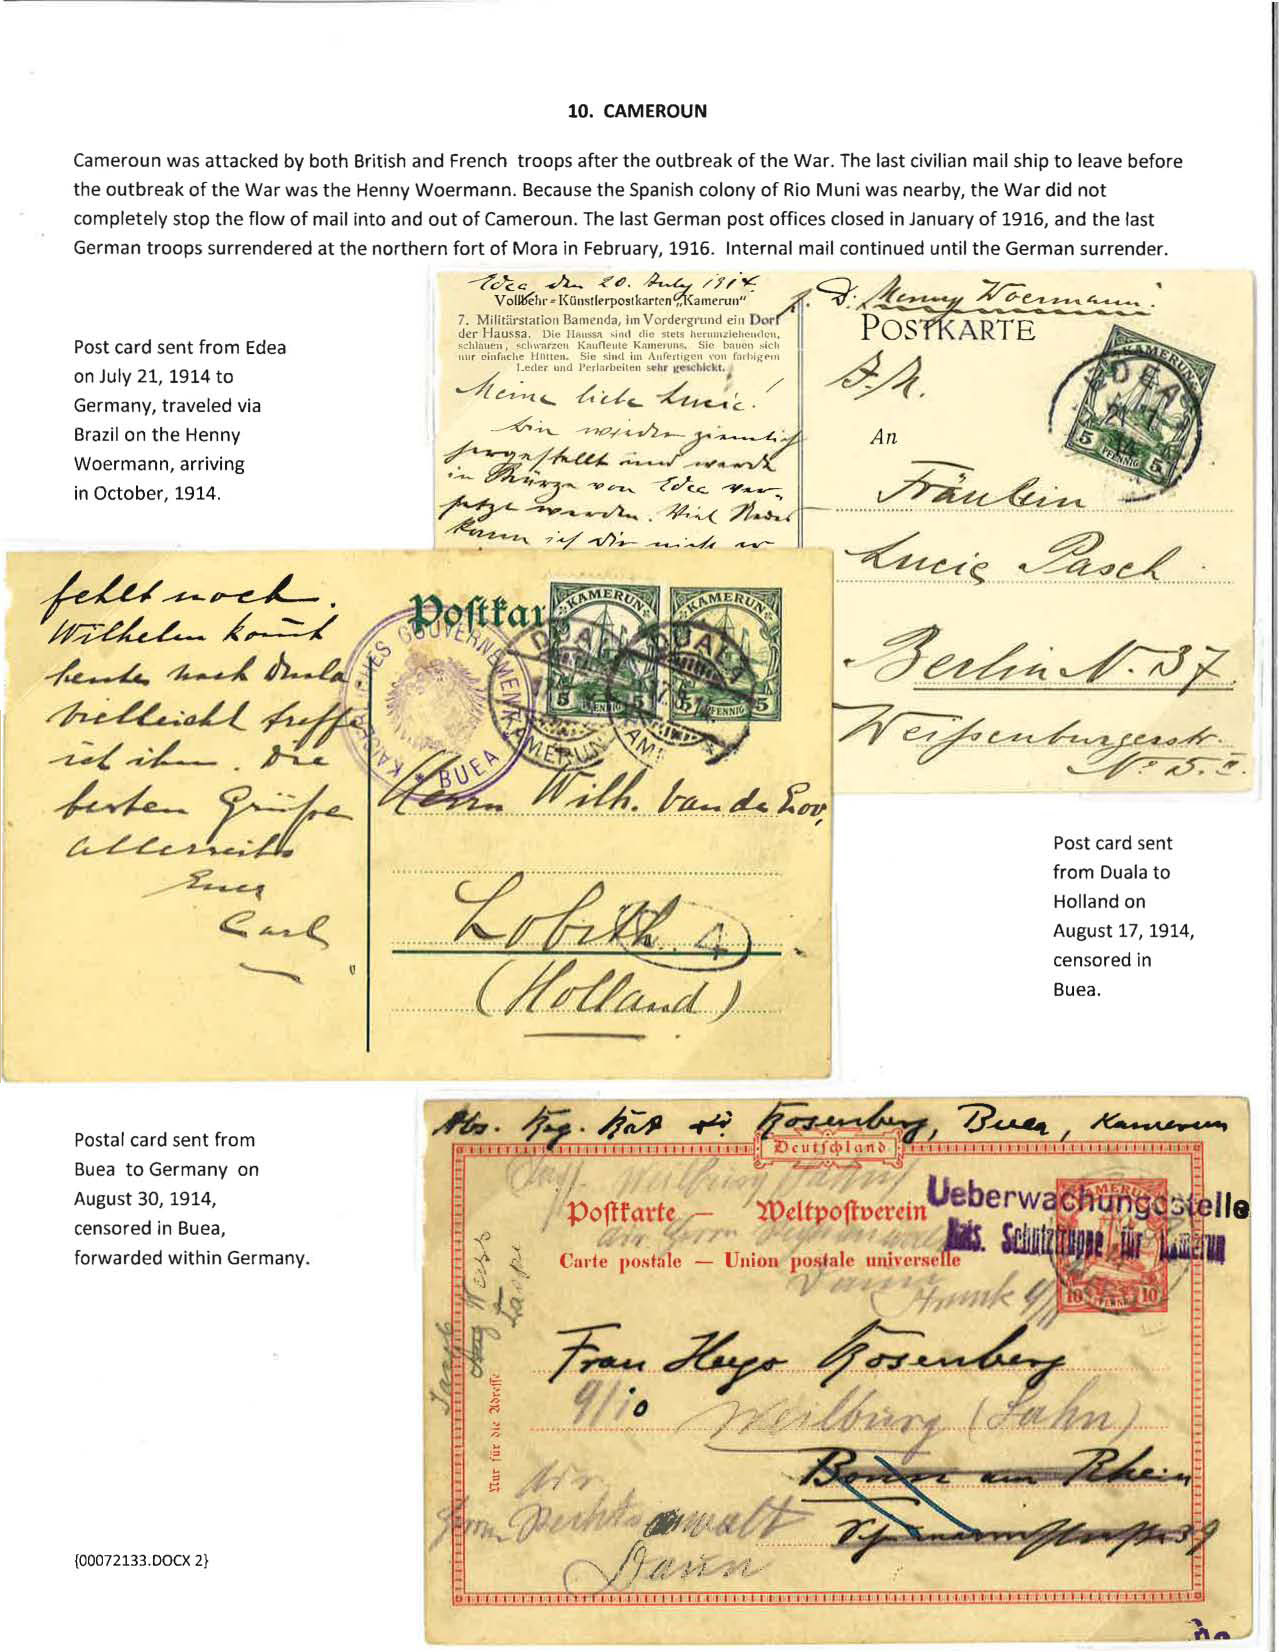 10. CAMEROUN
Cameroun was attacked by both British and French troops after the outbreak of the War. The last civilian mail ship to leave before
the outbreak of the War was the Henny Woermann. Because the Spanish colony of Rio Muni was nearby, the War did not
completely stop the flow of mail into and out of Cameroun. The last German post offices closed in January of 1916, and the last
German troops surrendered at the northern fort of Mora in February, 1916. Internal mail continued until the German surrender.
Post card sent from Edea
on July 21, 1914 to
Germany, traveled via
Brazil on the Henny
Woermann, arriving
in October, 1914.
Edea den 20. July 1914.
Vollbehr-Künstlerpostkarten „Kamerun"
7. Militärstation Bamenda, im Vordergrund ein Dorf
der Haussa. Die Haussa sind die stets herumziehenden,
schlauen, schwarzen Kaufleute Kameruns. Sie bauen sich
nur einfache Hütten. Sie sind im Anfertigen von farbigem
Leder und Perlarbeiten sehr geschickt.
Meine liebe Lucie!
bin wieder ziemlich
hergestellt und werde
in Kürze von Edea ver-
setzt werden. Viel
kann ich Dir nicht
p. D. Henny Woermann.
POSTKARTE
KAMERUN
EDEA
21 7
14
5 PFENNIG 5
An
Fräulein
Lucie Pasch
Berlin N. 37
Weißenburgerstr.
No 5. II.
fehlt noch.
Wilhelm kommt
heute nach Duala
vielleicht treffe
ich ihn. Die
besten Grüße
allerseits
Euer
Carl
Postkar
KAISERLICHES GOUVERNEMENT
BUEA
KAMERUN
5 PFENNIG 5
KAMERUN
5 PFENNIG 5
DUALA
KAMERUN
DUALA
KAM
Herrn Wilh. van de Loo,
Lobith.
4
(Holland)
Post card sent
from Duala to
Holland on
August 17, 1914,
censored in
Buea.
Postal card sent from
Buea to Germany on
August 30, 1914,
censored in Buea,
forwarded within Germany.
Abs. Reg. Rat Dr. Rosenberg, Buea, Kamerun
Deutschland
Postkarte — Weltpostverein
Carte postale — Union postale universelle
Ueberwachungsstelle
Kais. Schutztruppe für Kamerun
KAMERUN
10 PFENNIG 10
Nur für die Adresse
Frau Hugo Rosenberg
9/10
Weilburg (Lahn)
Bonn am Rhein
39
Herrn Rechtsanwalt
Daun
{00072133.DOCX 2}